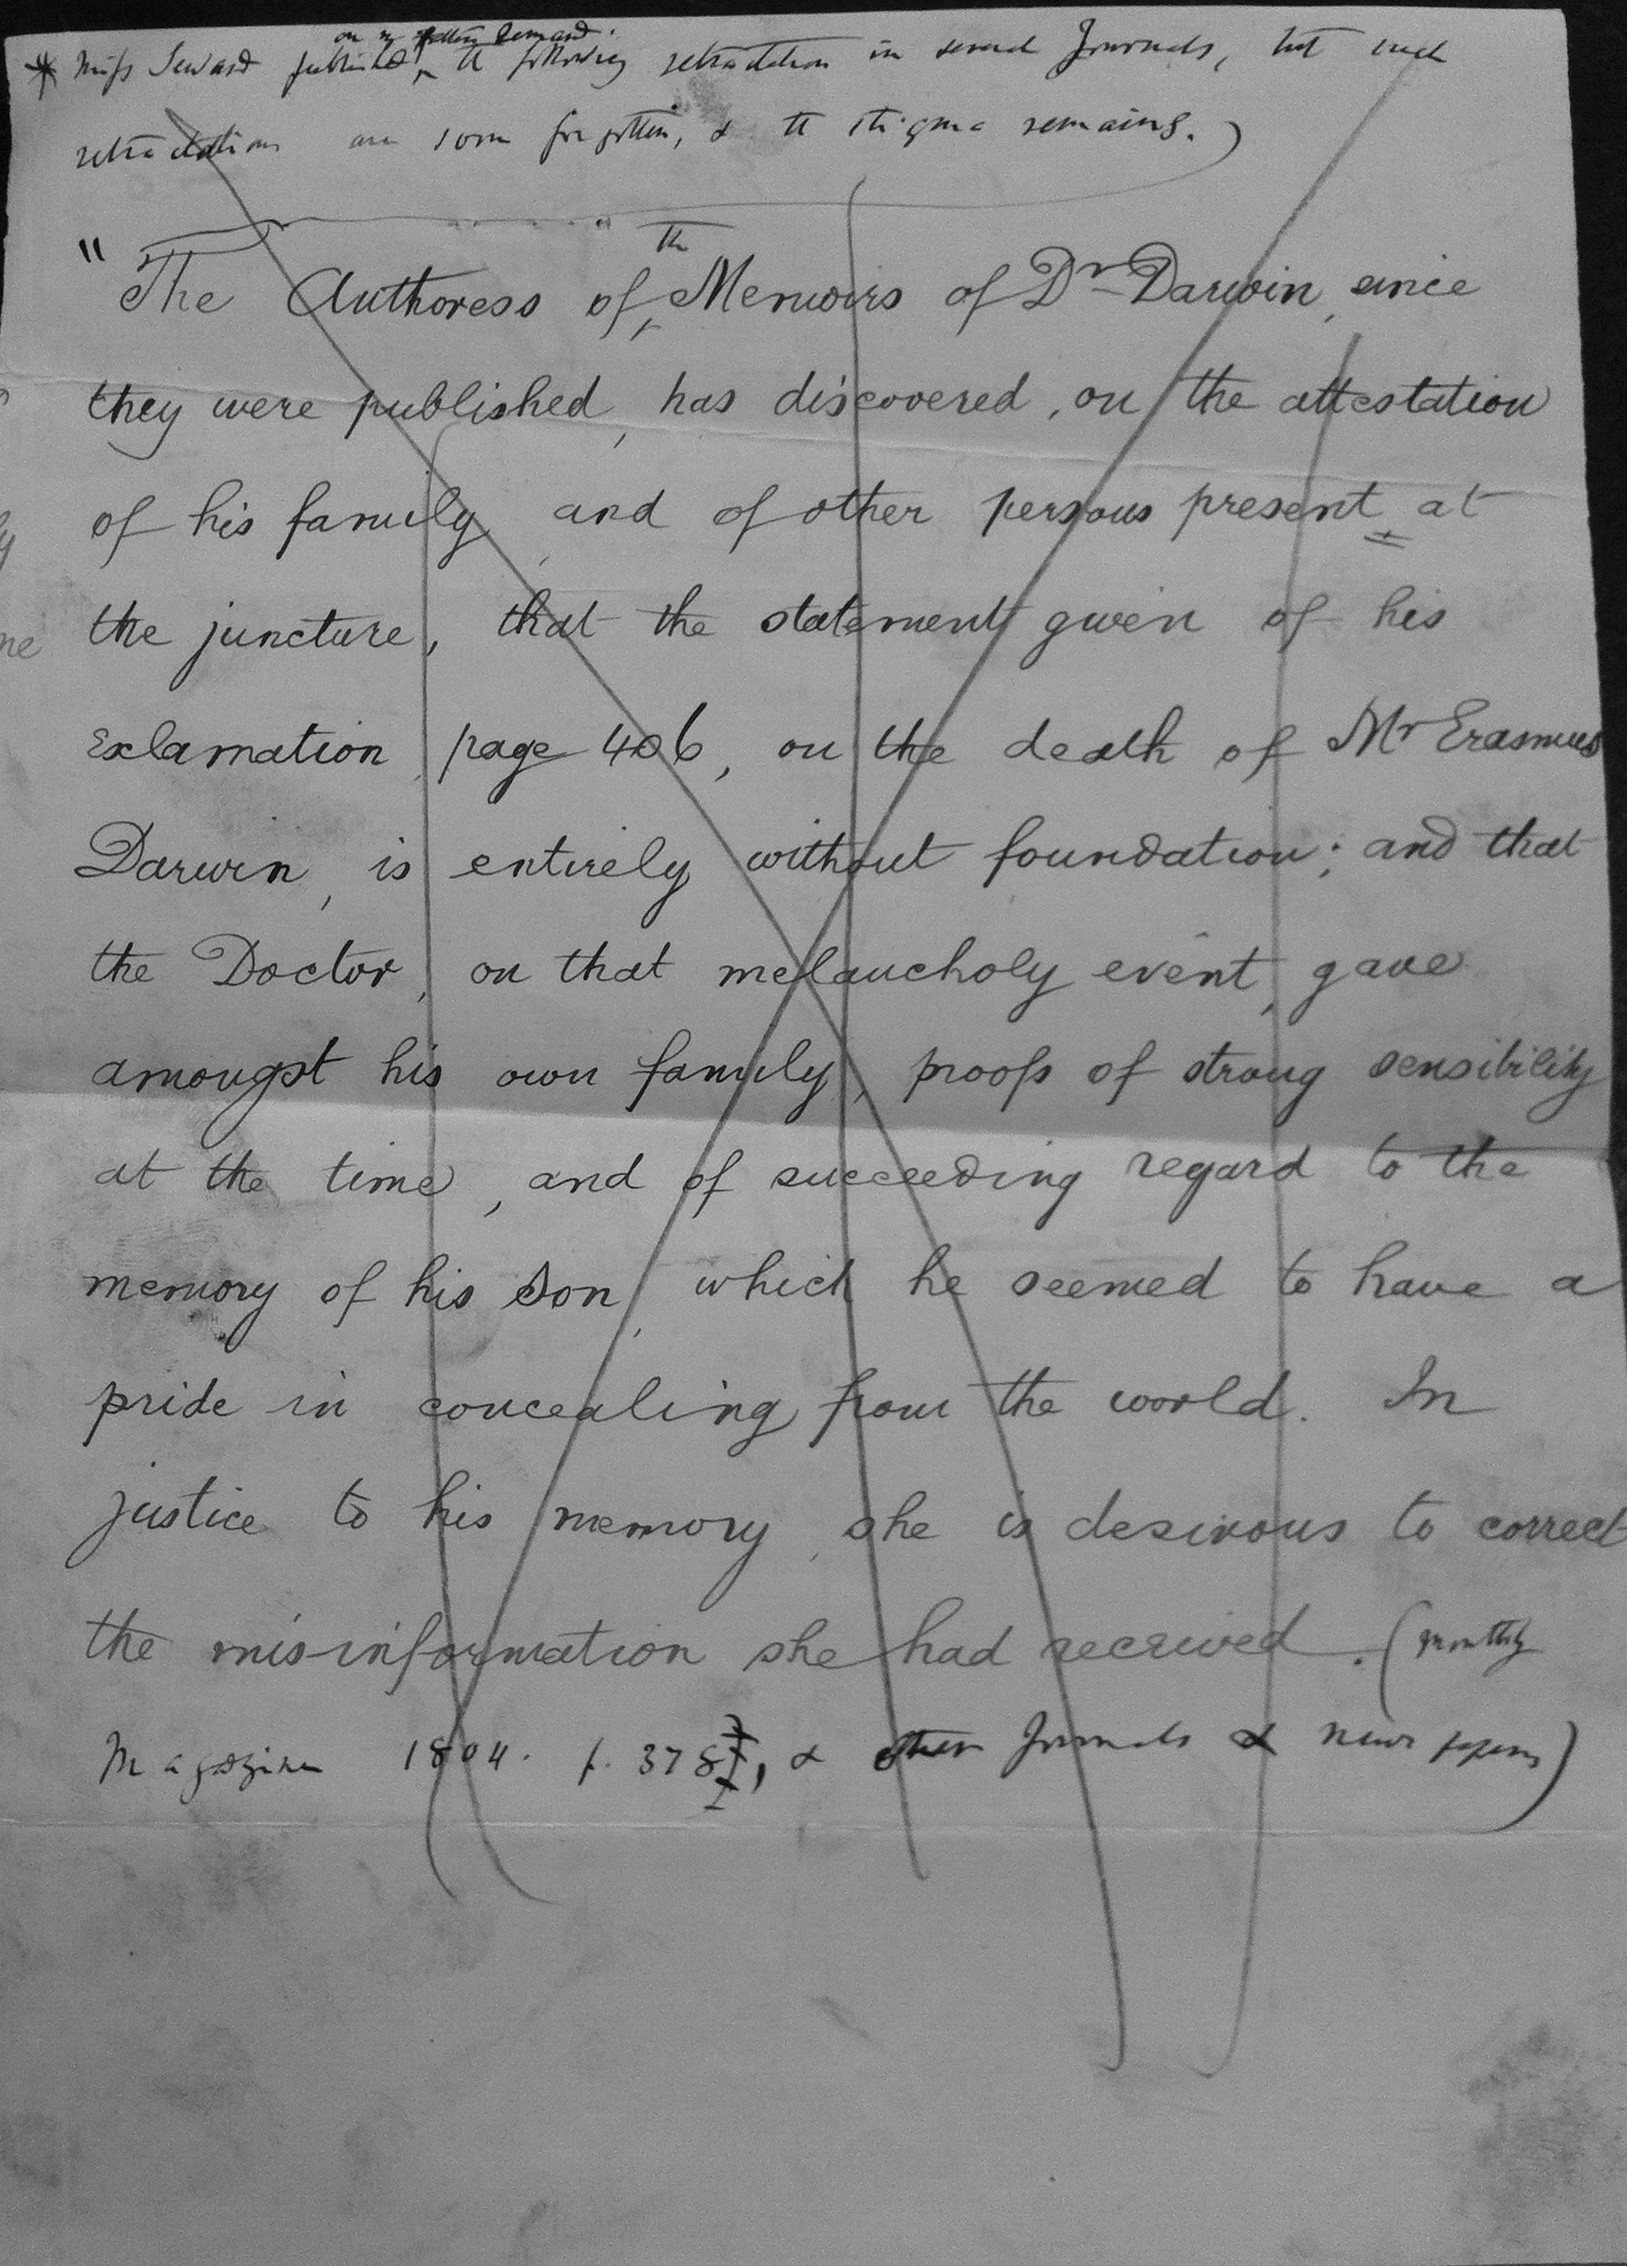 * Miss Seward published the following retractation in several Journals, but such
retractations are soon forgotten, & the stigma remains.)
"The Authoress of the Memoirs of Dr Darwin, since
they were published, has discovered, on the attestation
of his family, and of other persons present at
the juncture, that the statement given of his
exclamation, page 406, on the death of Mr Erasmus
Darwin, is entirely without foundation; and that
the Doctor, on that melancholy event, gave
amongst his own family, proofs of strong sensibility
at the time, and of succeeding regard to the
memory of his son, which he seemed to have a
pride in concealing from the world. In
justice to his memory, she is desirous to correct
the mis-information she had received. (Monthly
Magazine 1804. p. 378, & other Journals & newspapers)